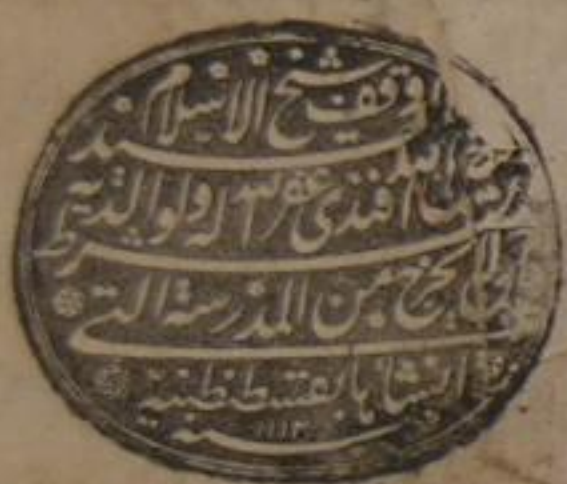 وقف شيخ الاسلام
السيد فيض الله افندى غفر الله له ولوالديه
بشرط ان لا يخرج من المدرسة التى
انشاها بقسطنطينية
سنة ١١١٣